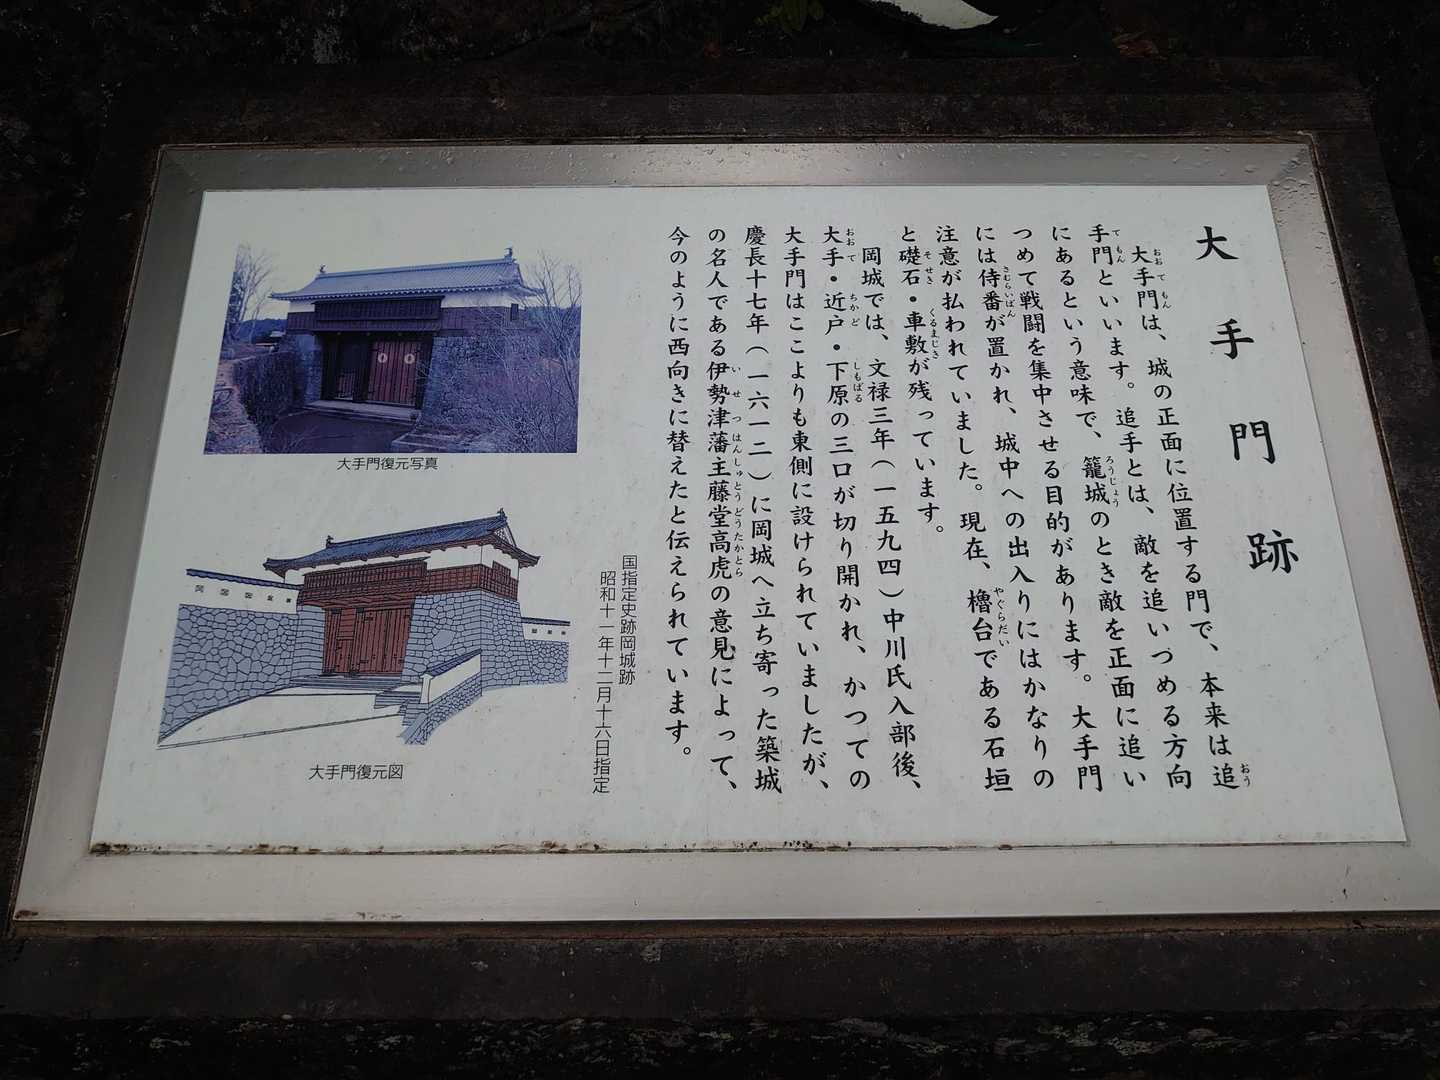 大手門跡
大手門は、城の正面に位置する門で、本来は追
手門といいます。追手とは、敵を追いつめる方向
にあるという意味で、籠城のとき敵を正面に追い
つめて戦闘を集中させる目的があります。大手門
には侍番が置かれ、城中への出入りにはかなりの
注意が払われていました。現在、櫓台である石垣
と礎石・車敷が残っています。
岡城では、文禄三年(一五九四)中川氏入部後、
大手・近戸・下原の三口が切り開かれ、かつての
大手門はここよりも東側に設けられていましたが、
慶長十七年(一六一二)に岡城へ立ち寄った築城
の名人である伊勢津藩主藤堂高虎の意見によって、
今のように西向きに替えたと伝えられています。
国指定史跡岡城跡
昭和十一年十二月十六日指定
大手門復元写真
大手門復元図